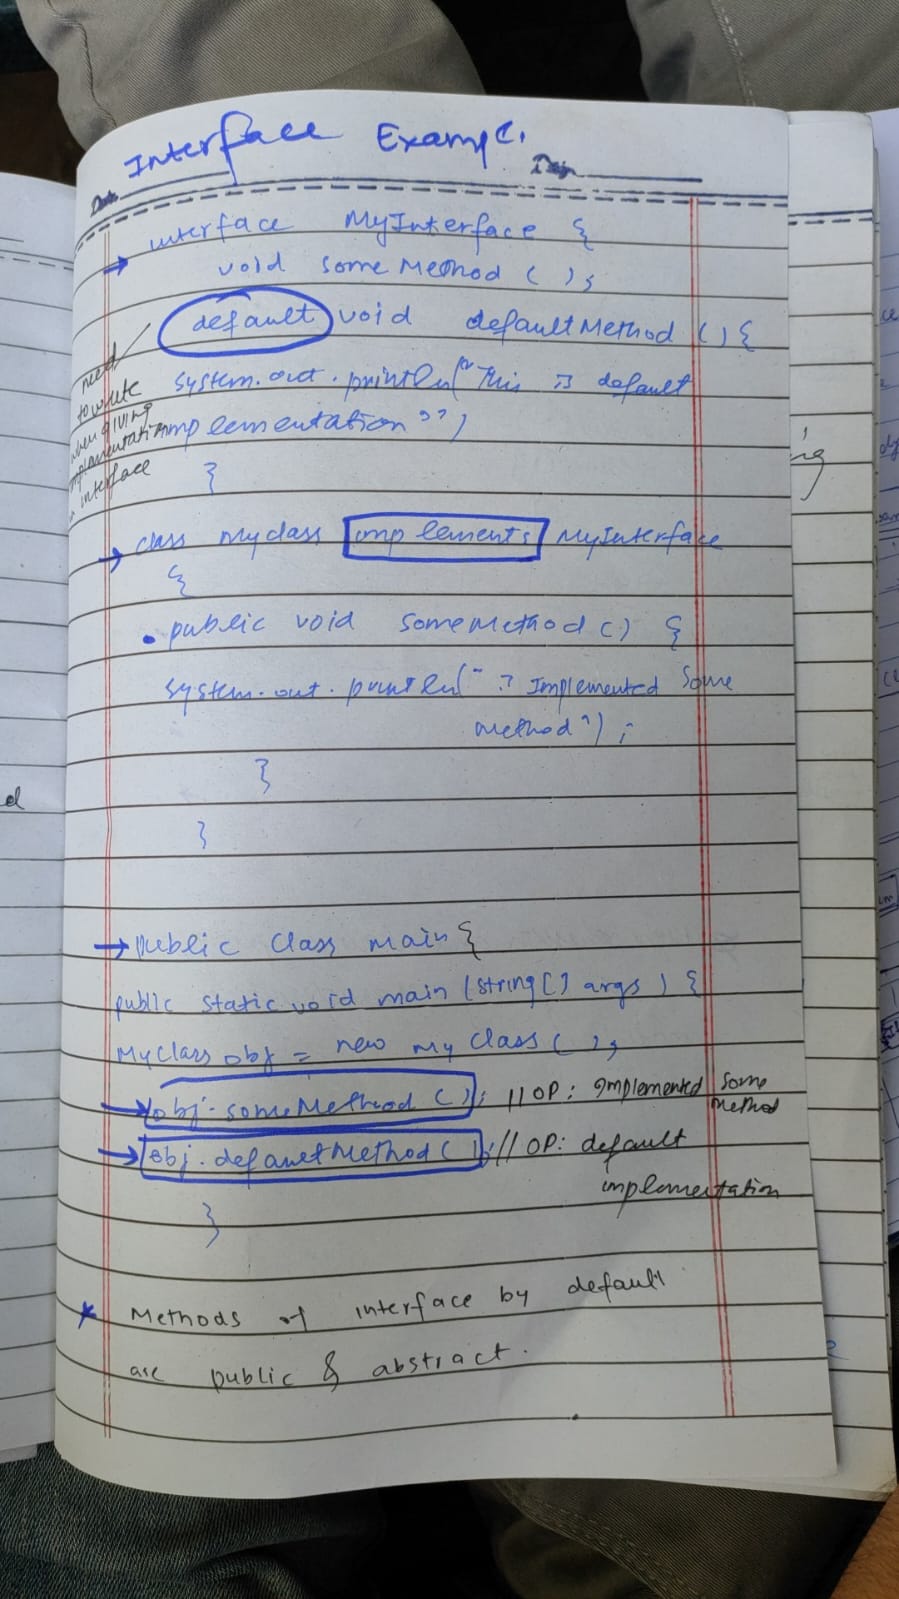 Interface Example
Date Page
→ interface MyInterface {
void some Method ( );
default void default Method ( ) {
need
to write
when giving
implementation
interface
system.out.println("This is default
implementation");
}
→ class Myclass implements MyInterface
{
• public void someMethod() {
system.out.println(" Implemented Some
Method");
}
}
→ public class main {
public static void main (string[] args) {
Myclass obj = new my class ( );
→ obj.someMethod ( ); // OP: Implemented Some
Method
→ obj.defaultMethod ( ); // OP: default
implementation
}
* Methods of interface by default
are public & abstract.